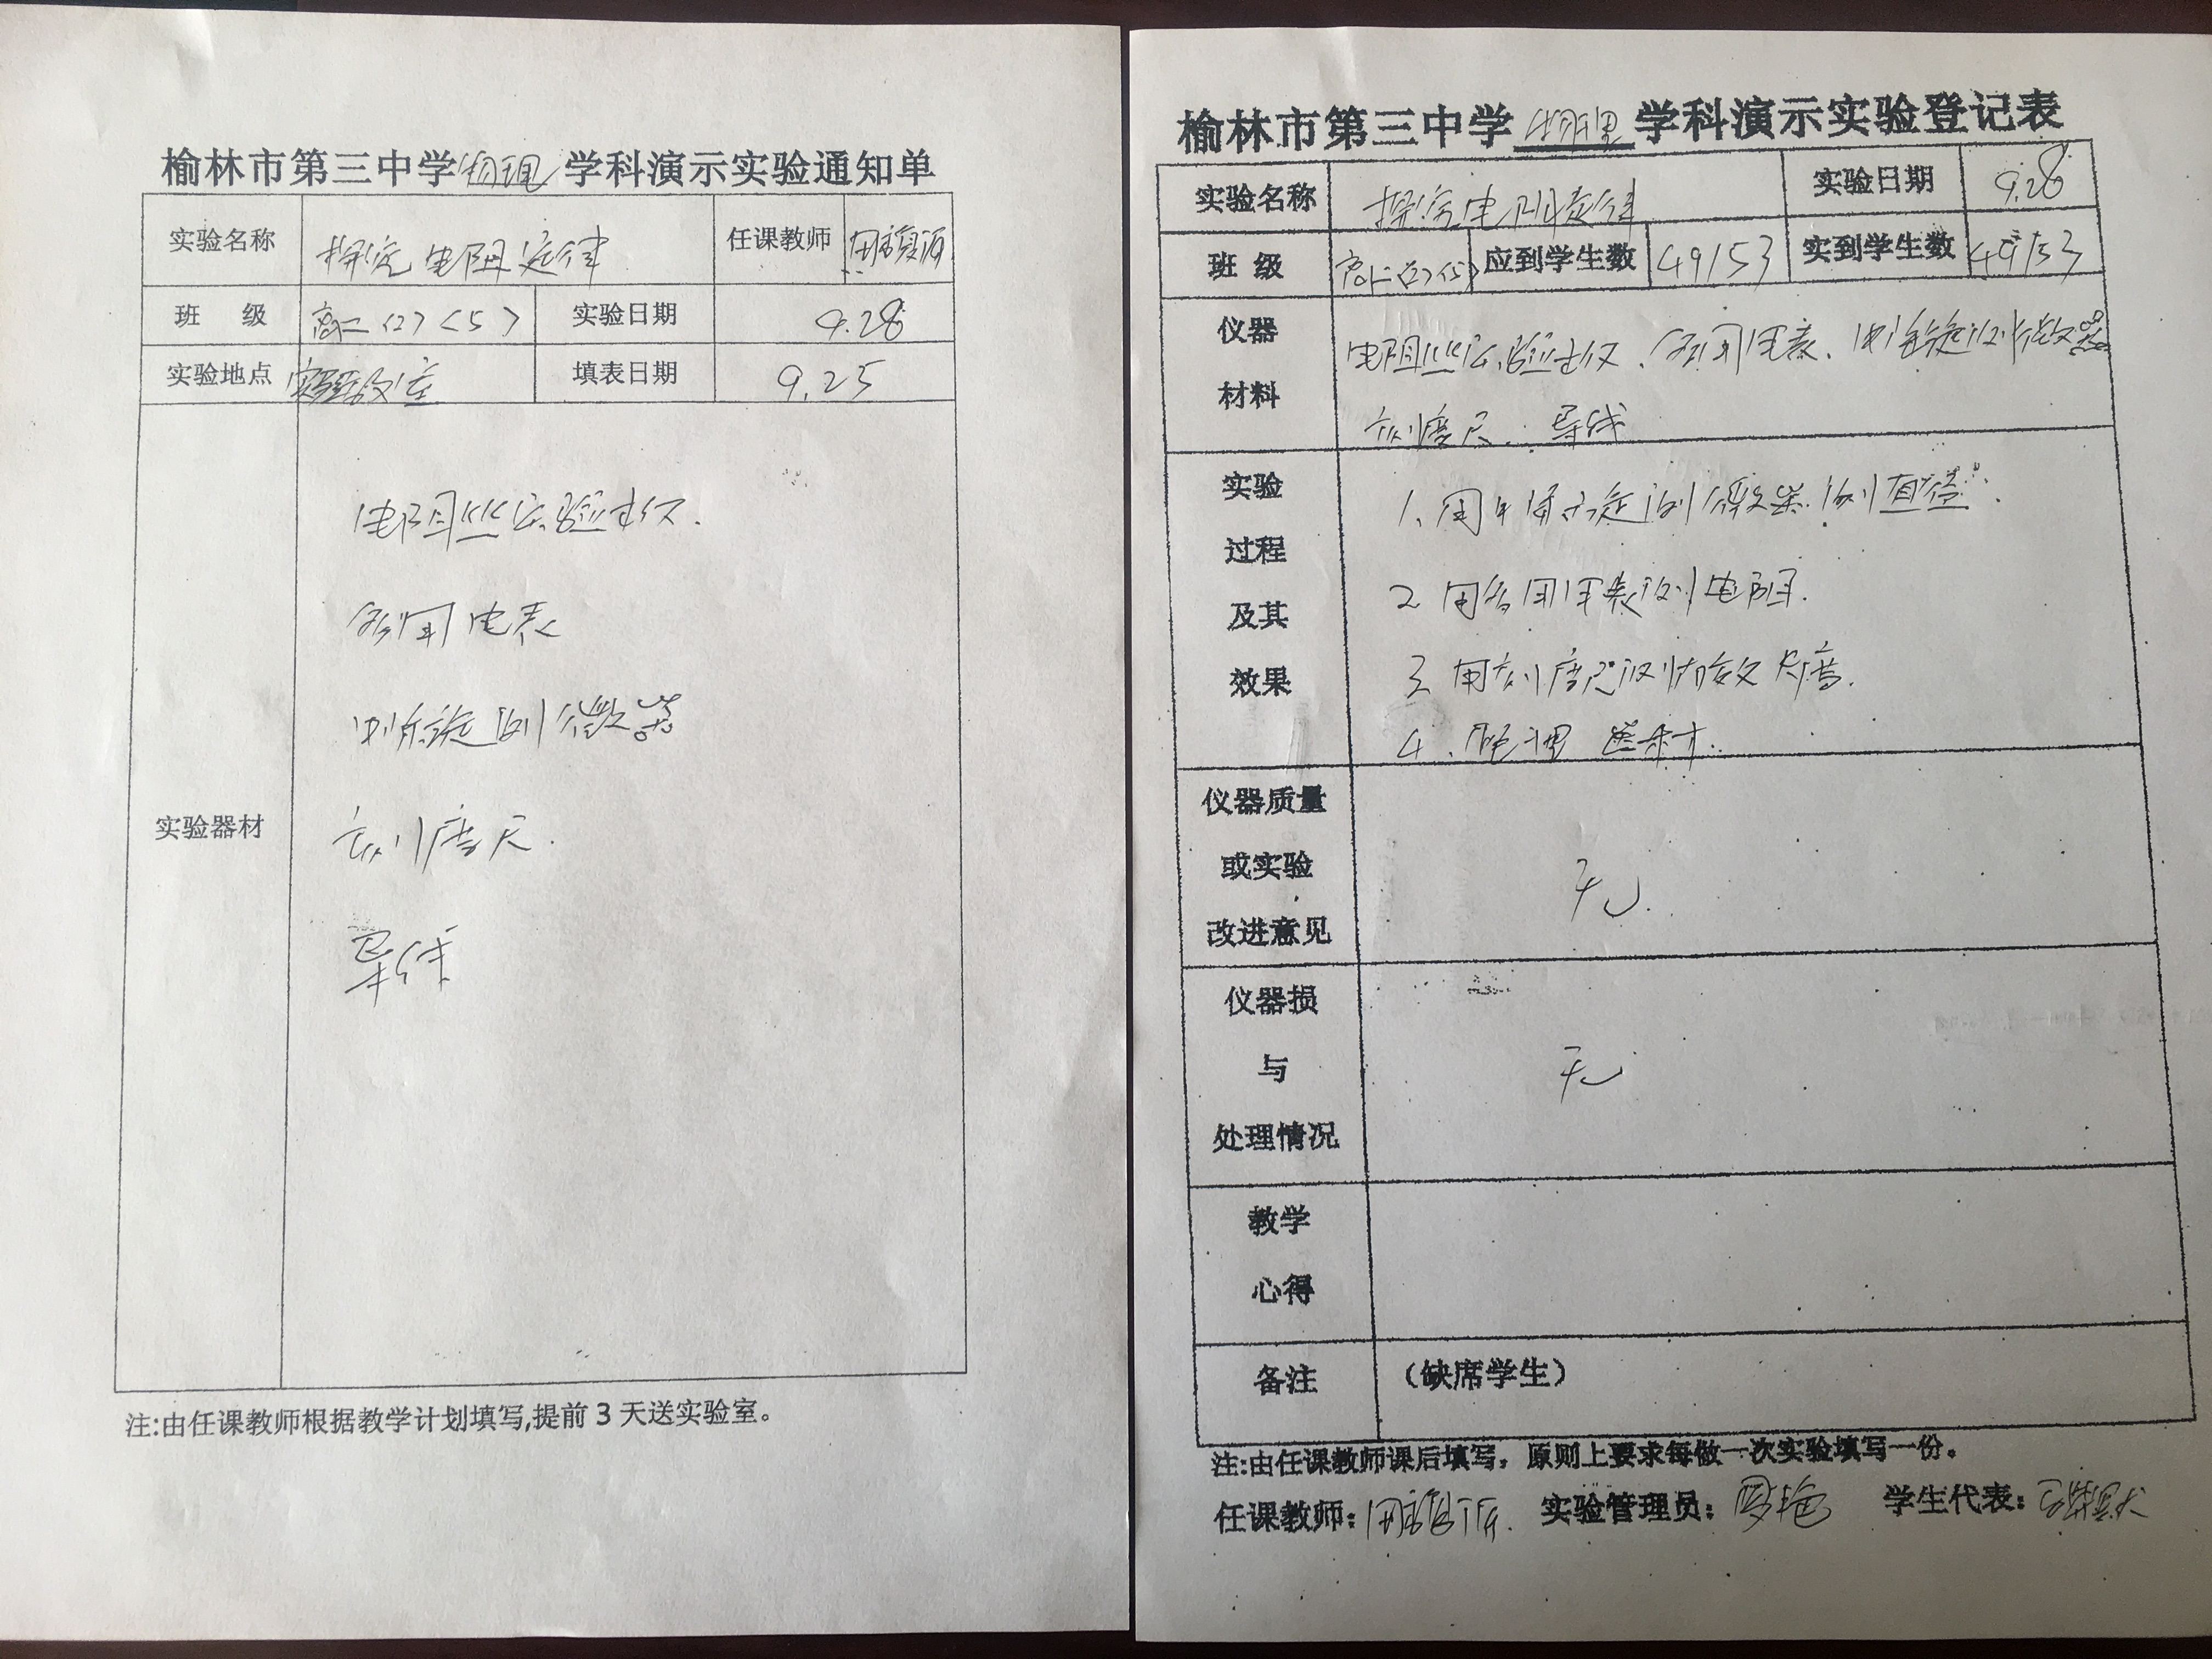 榆林市第三中学物理学科演示实验通知单
实验名称 探究电阻定律 任课教师
班 级 高二(2)(5) 实验日期 9.28
实验地点 实验室 填表日期 9.25
实验器材
电阻丝实验仪.
多用电表
螺旋测微器
刻度尺.
导线
注:由任课教师根据教学计划填写,提前3天送实验室。
榆林市第三中学物理学科演示实验登记表
实验名称 探究电阻定律 实验日期 9.28
班 级 高二(2)(5) 应到学生数 49/53 实到学生数 49/53
仪器
材料
电阻丝实验仪、多用电表、螺旋测微器
刻度尺、导线
实验
过程
及其
效果
1、用螺旋测微器测直径.
2 用多用电表测电阻.
3 用刻度尺测有效长度.
4、整理器材.
仪器质量
或实验
改进意见
无.
仪器损
与
处理情况
无
教学
心得
备注 (缺席学生)
注:由任课教师课后填写，原则上要求每做一次实验填写一份。
任课教师: 实验管理员: 学生代表: